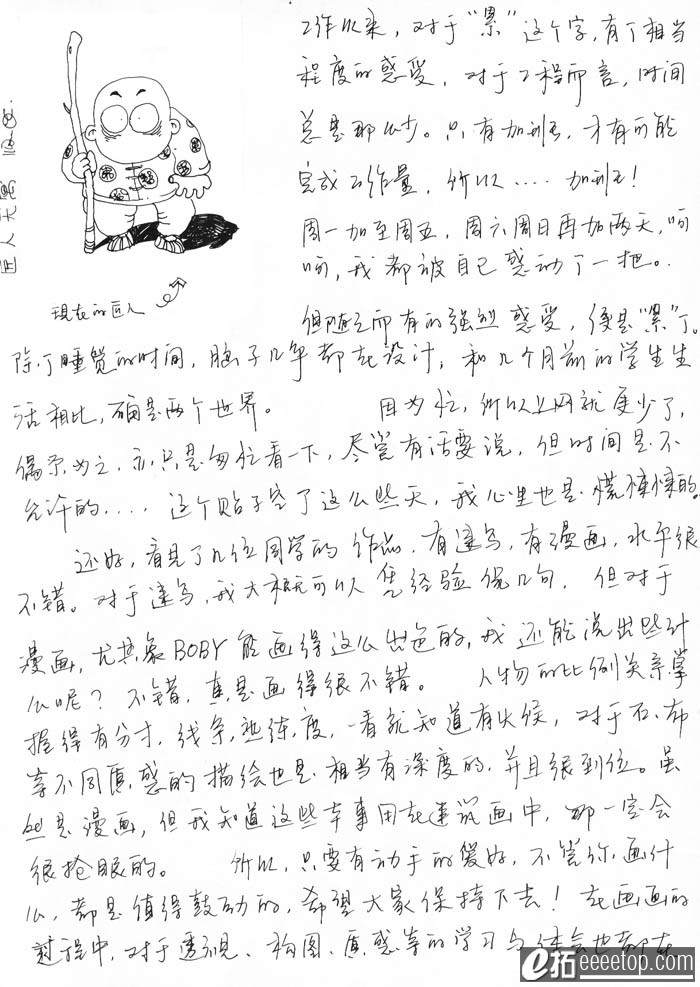 工作以来，对于“累”这个字，有了相当
程度的感受，对于工程而言，时间
总是那么少。只有加班，才有可能
完成工作量，所以....加班！
周一加至周五，周六周日再加两天，呵
呵，我都被自己感动了一把。
但随之而有的强烈感受，便是“累”了。
现在的匠人
除了睡觉的时间，脑子几乎都在设计，和几个月前的学生生
活相比，确是两个世界。 因为忙，所以上网就更少了，
偶尔为之，亦只是匆忙看一下，尽管有话要说，但时间是不
允许的....这个贴子空了这么些天，我心里也是慌慌的。
还好，看见了几位同学的作品，有速写，有漫画，水平很
不错。对于速写，我大概可以凭经验侃几句，但对于
漫画，尤其象BOBY能画得这么出色的，我还能说出些什
么呢？不错，真是画得很不错。 人物的比例关系掌
握得有分寸，线条，熟练，度，一看就知道有火候，对于石、布
等不同质感的描绘也是相当有深度的，并且很到位。虽
然是漫画，但我知道这些本事用在建筑画中，那一定会
很抢眼的。 所以，只要有动手的爱好，不管你画什
么，都是值得鼓励的，希望大家保持下去！在画画的
过程中，对于透视、构图、质感等的学习与体会也都在
e拓 eeeetop.com